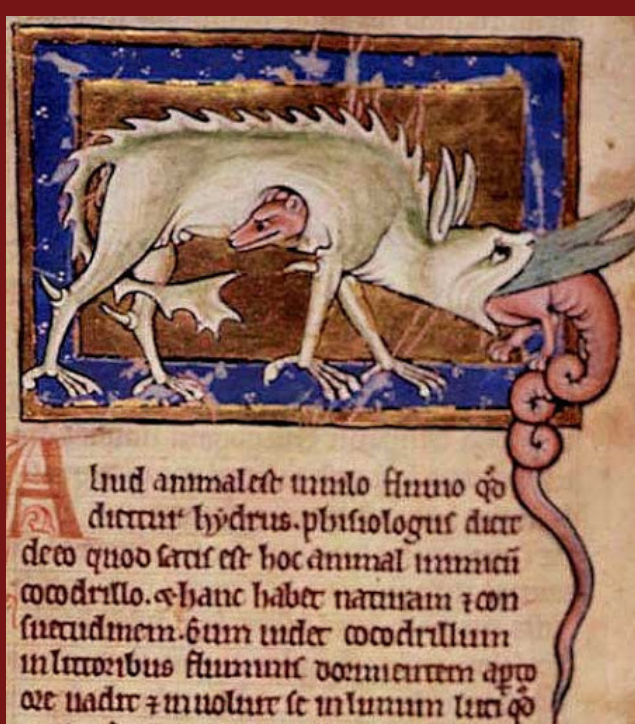 Aliud animal est in nilo fluuio qd
dicitur hydrus. phisiologus dicit
de eo quod satis est hoc animal inimicū
cocodrillo. ⁊ hanc habet naturam ⁊ con
suetudinem. Cum uidet cocodrillum
in littoribus fluminis dormientem apto
ore uadit ⁊ inuoluit se in limum luti qd